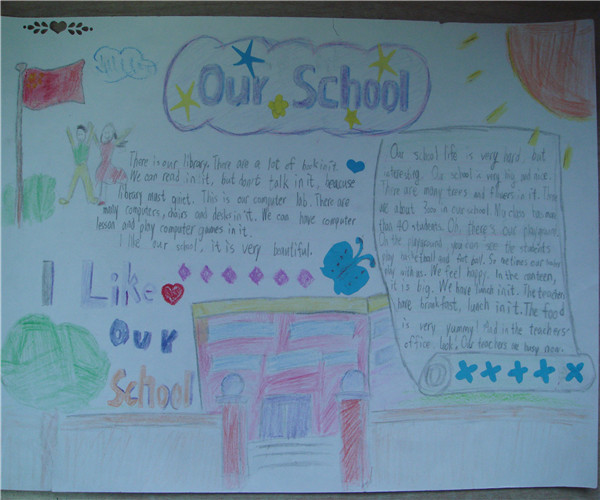 Our School
There is our library. There are a lot of book in it.
We can read in it, but don't talk in it, beacuse
library must quiet. This is our computer lab. There are
many computers, chairs and desks in it. We can have computer
lesson and play computer games in it.
I like our school, it is very beautiful.
Our school life is very hard but
interesting. Our school is very big and nice.
There are many trees and flowers in it. There
are about in our school. My class has more
than 40 students. Oh, there's our playground.
On the playground you can see the students
play and foot ball. So metimes our
play with us. We feel happy. In the canteen,
it is big. We have lunch in it. The teachers
have breakfast, lunch in it. The food
is very yummy! And in the teachers'
office, look! Our teachers are busy now.
I Like
Our
School